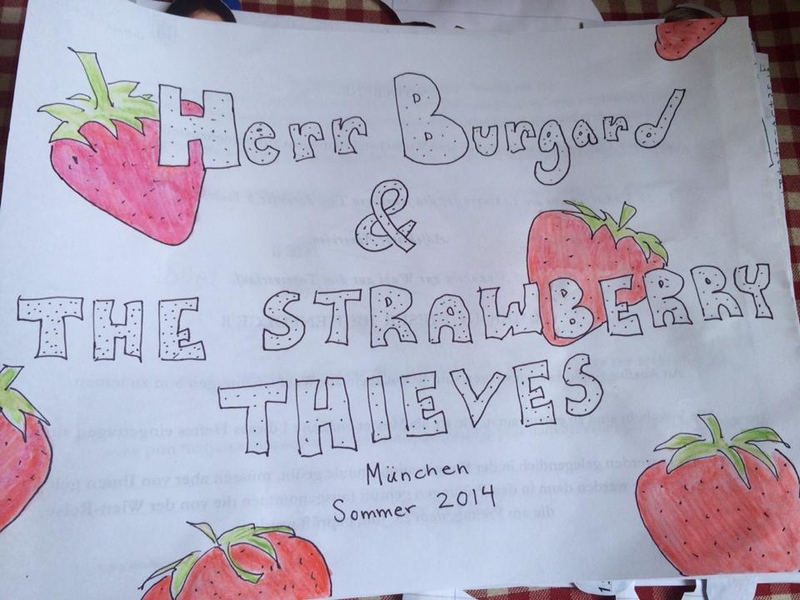 Herr Burgard
&
THE STRAWBERRY
THIEVES
München
Sommer 2014